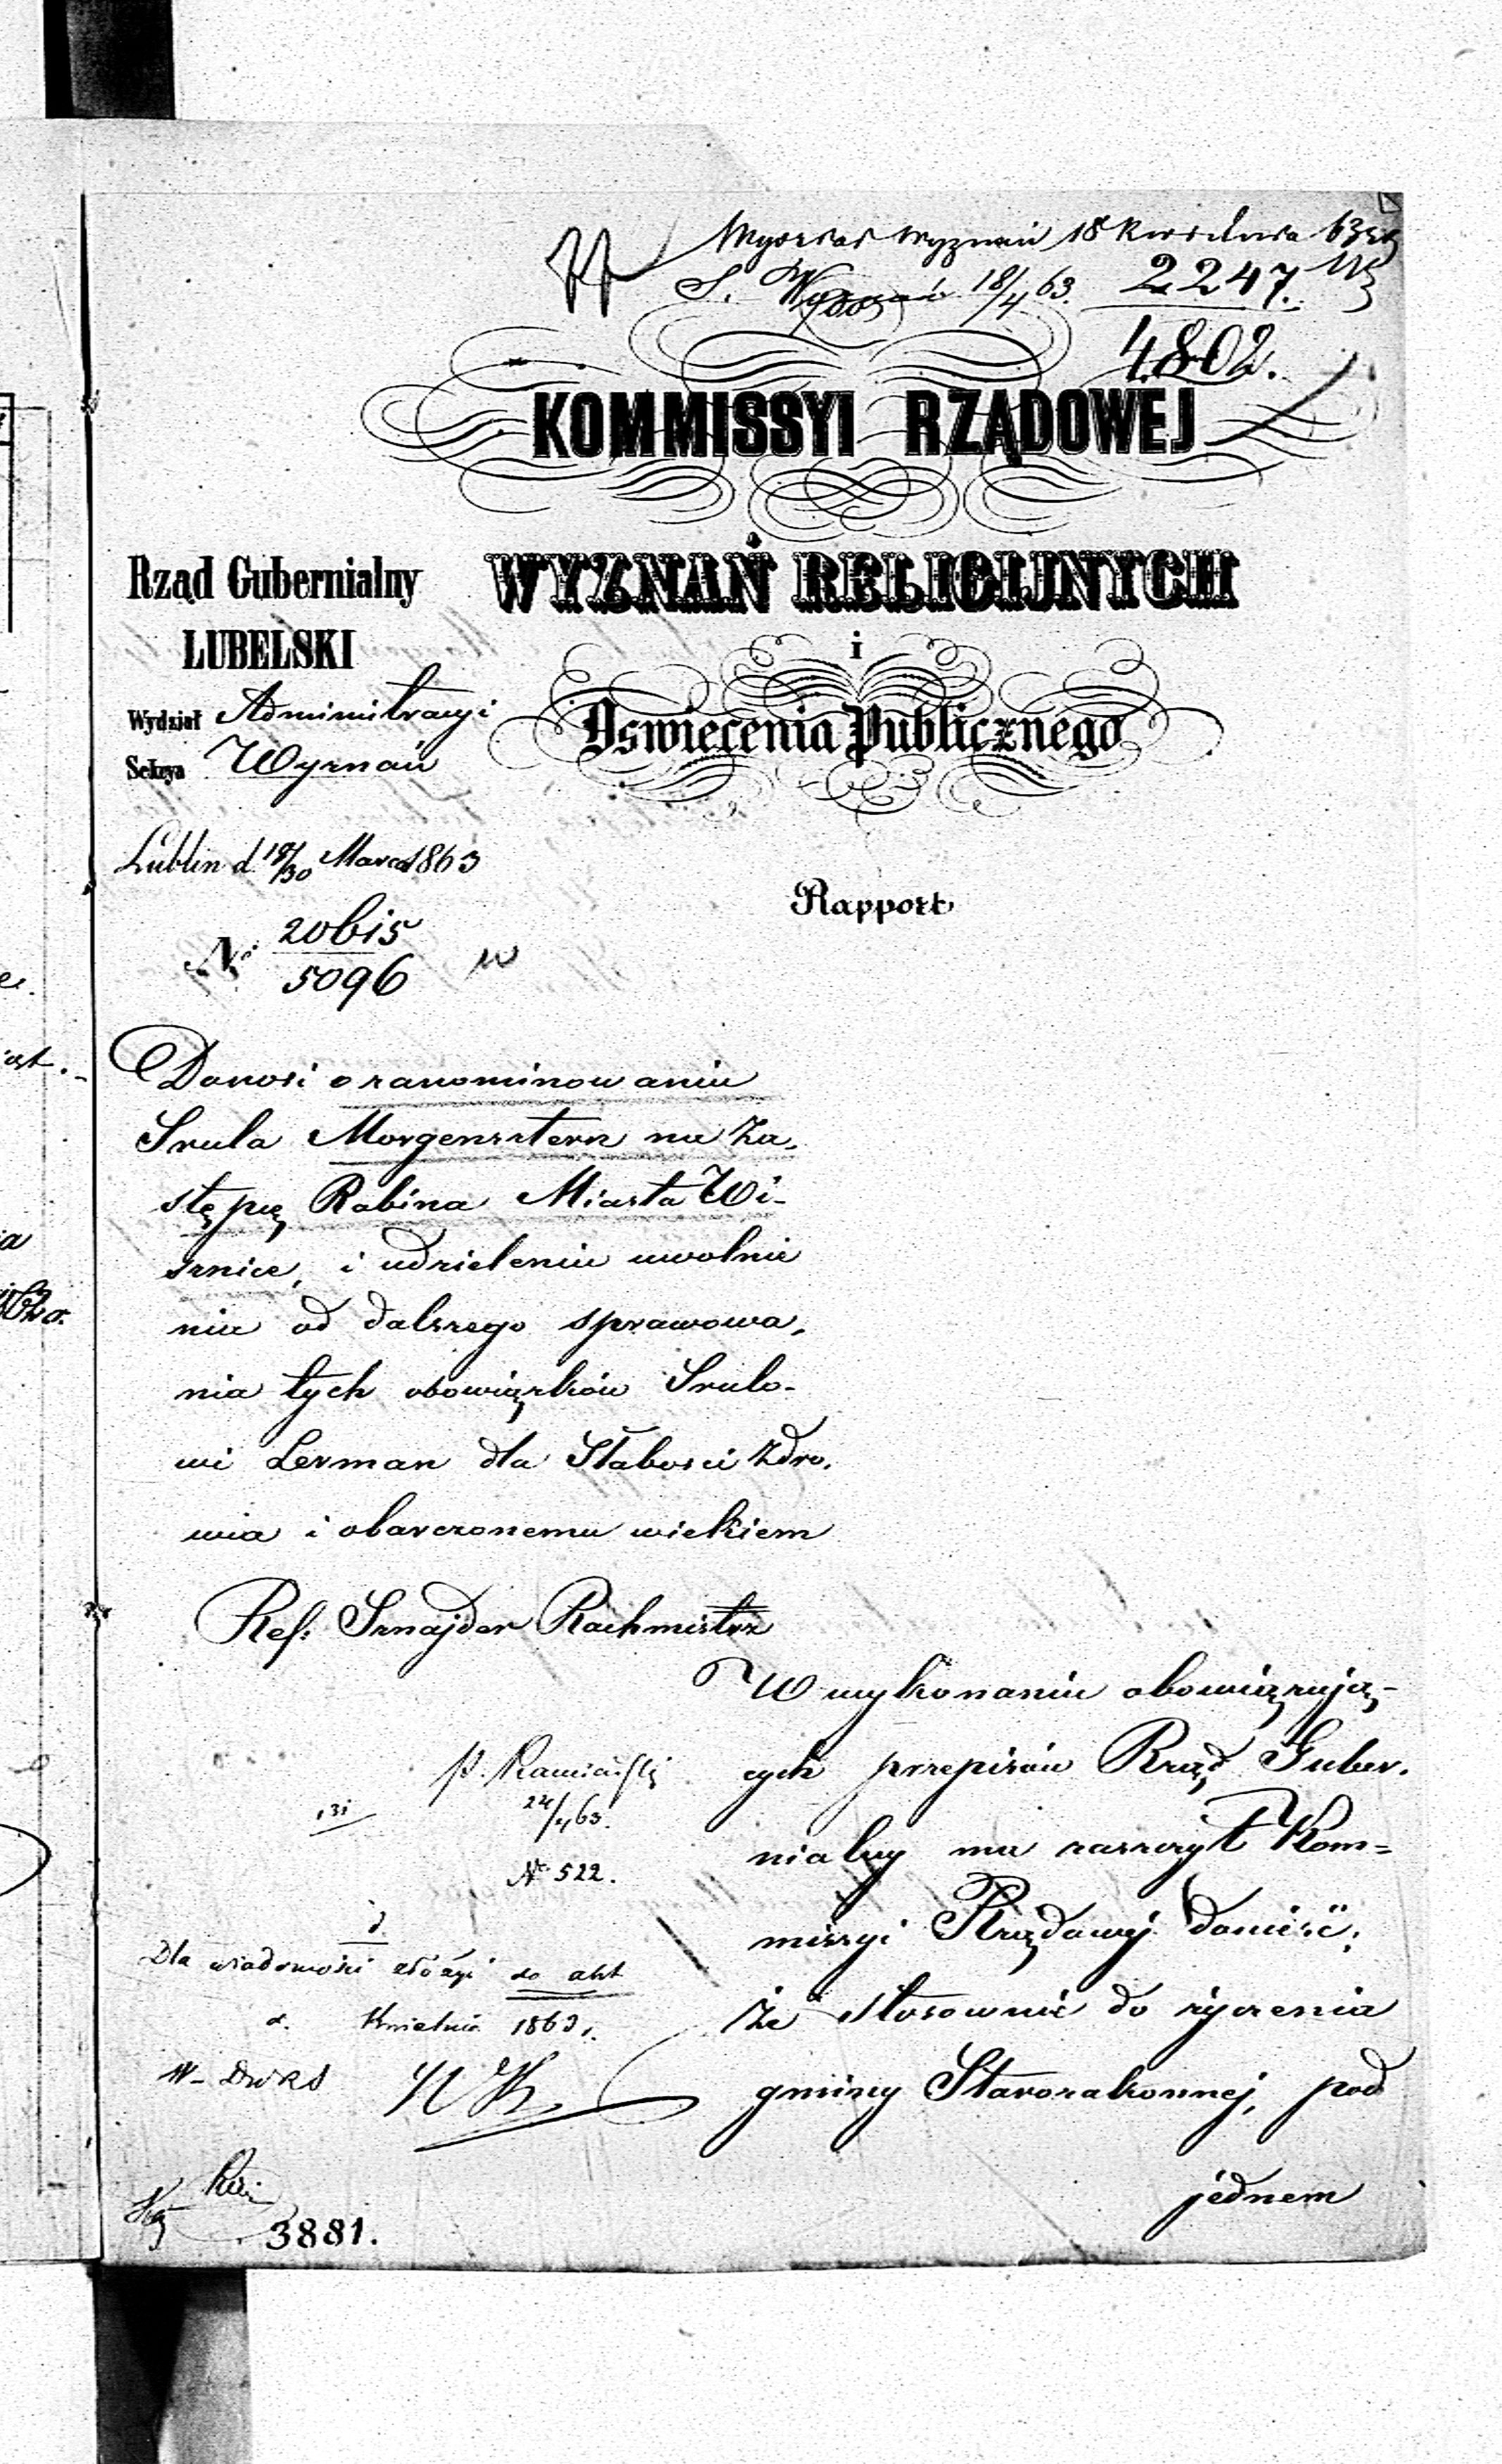 Wyznań 18 Kwietnia 63
S. Wyznań 18/4 63. 2247.
4802.
KOMMISSYI RZĄDOWEJ
WYZNAŃ RELIGIJNYCH
i
Oswiecenia Publicznego
Rząd Gubernialny
LUBELSKI
Wydział Administracyi
Sekcya Wyznań
Lublin d. 18/30 Marca 1863
Rapport
N° 20bis
5096
Donosi o zanominowaniu
Srula Morgensztern na Za-
stępcę Rabina Miasta Wi-
sznice, i udzieleniu uwolnie
nia od dalszego sprawowa-
nia tych obowiązków Srulo-
wi Lerman dla Słabości Zdro-
wia i obarczonemu wiekiem
Ref: Sznajder Rachmistrz
W wykonaniu obowiązują-
cych przepisów Rząd Guber-
nialny ma zaszczyt Kom=
missyi Rządowej donieść;
że stosownie do życzenia
gminy Starozakonnej, pod
jednem
N° 522.
Dla wiadomości złożyć do akt
d. Kwietnia 1863 r.
3881.